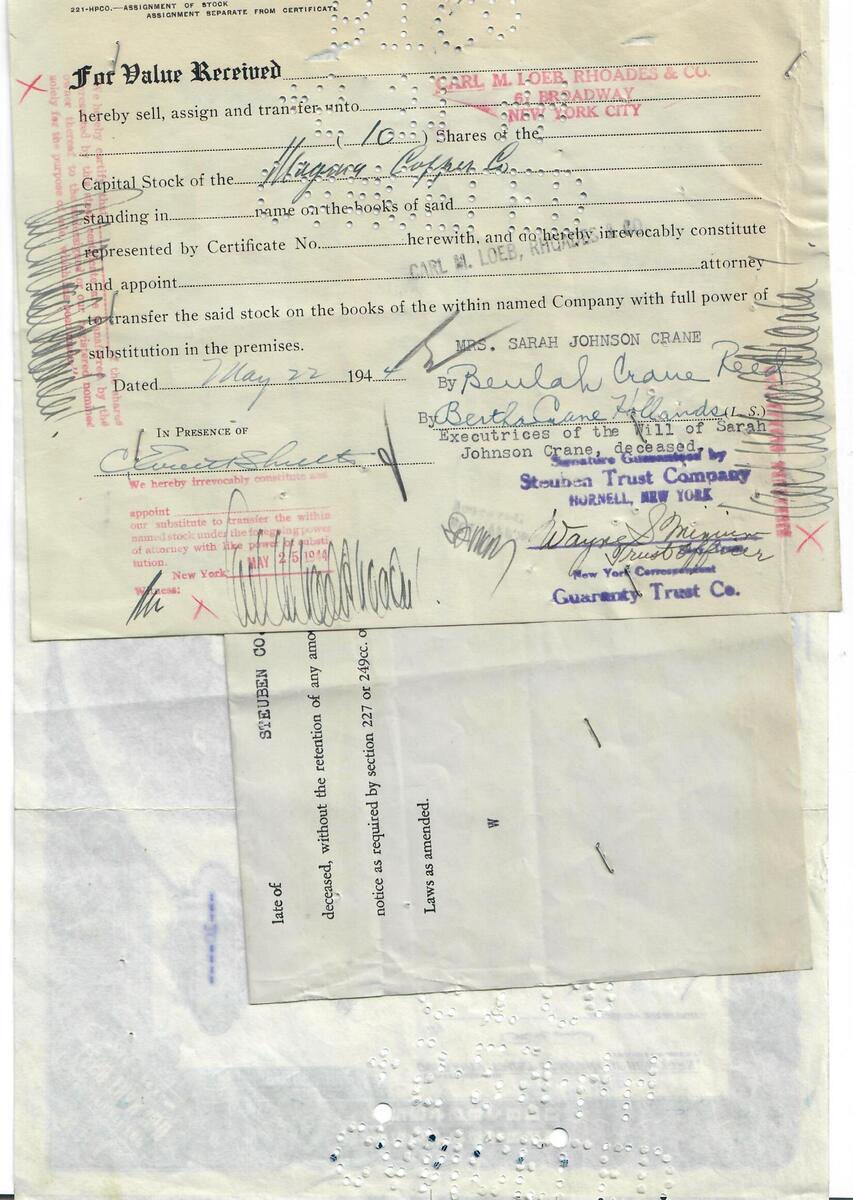 221-HPCO.—ASSIGNMENT OF STOCK
ASSIGNMENT SEPARATE FROM CERTIFICATE
For Value Received
CARL M. LOEB, RHOADES & CO.
61 BROADWAY
NEW YORK CITY
hereby sell, assign and transfer unto
( 10 ) Shares of the
Capital Stock of the Copper Co
standing in name on the books of said
represented by Certificate No. herewith, and do hereby irrevocably constitute
CARL M. LOEB, RHOADES & CO
and appoint attorney
to transfer the said stock on the books of the within named Company with full power of
substitution in the premises.
MRS. SARAH JOHNSON CRANE
Dated May 22 1944
By Beulah Crane Reed
By Bertha Crane Hollands (L. S.)
Executrices of the Will of Sarah
Johnson Crane, deceased,
IN PRESENCE OF
Signature Guaranteed by
Steuben Trust Company
HORNELL, NEW YORK
Wayne S
Trust Officer
New York Correspondent
Guaranty Trust Co.
We hereby irrevocably constitute and
appoint
our substitute to transfer the within
named stock under the foregoing power
of attorney with like power of substi
tution.
New York MAY 25 1944
Witness:
STEUBEN CO.
late of
deceased, without the retention of any amo
notice as required by section 227 or 249cc. o
Laws as amended.
W